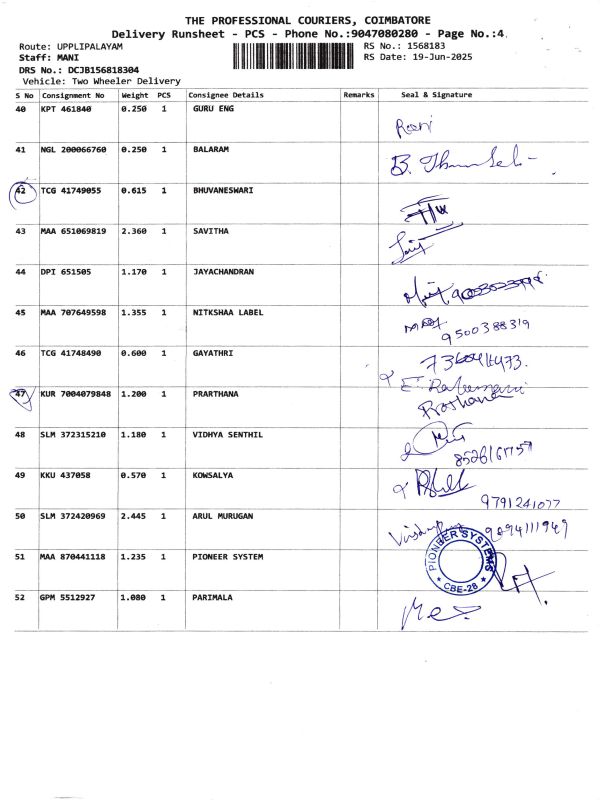 THE PROFESSIONAL COURIERS, COIMBATORE
Delivery Runsheet - PCS - Phone No.:9047080280 - Page No.:4
Route: UPPLIPALAYAM RS No.: 1568183
Staff: MANI RS Date: 19-Jun-2025
DRS No.: DCJB156818304
Vehicle: Two Wheeler Delivery
S No Consignment No Weight PCS Consignee Details Remarks Seal & Signature
40 KPT 461840 0.250 1 GURU ENG
Rani
41 NGL 200066760 0.250 1 BALARAM
B.
42 TCG 41749055 0.615 1 BHUVANESWARI
43 MAA 651069819 2.360 1 SAVITHA
44 DPI 651505 1.170 1 JAYACHANDRAN
45 MAA 707649598 1.355 1 NITKSHAA LABEL
9500388319
46 TCG 41748490 0.600 1 GAYATHRI
47 KUR 7004079848 1.200 1 PRARTHANA
Prarthana
48 SLM 372315210 1.180 1 VIDHYA SENTHIL
49 KKU 437058 0.570 1 KOWSALYA
9791241077
50 SLM 372420969 2.445 1 ARUL MURUGAN
9094111949
51 MAA 870441118 1.235 1 PIONEER SYSTEM
PIONEER SYSTEMS
CBE-28
52 GPM 5512927 1.080 1 PARIMALA